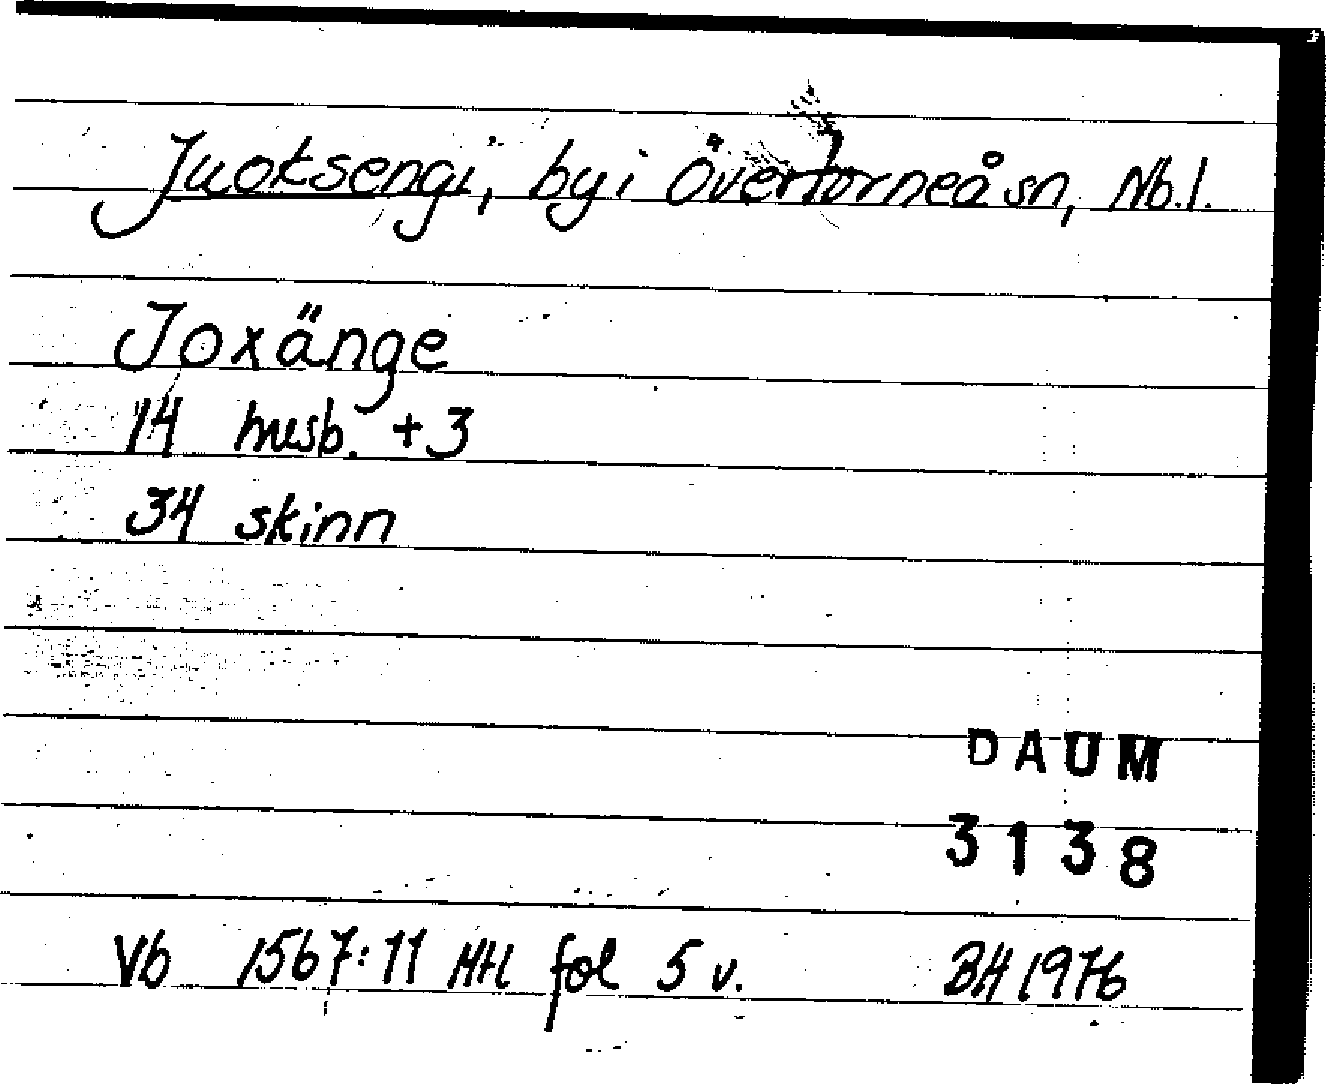 Juoksengi, by i Övertorneå sn, Nb.l.
Joxänge
14 husb. +3
34 skinn
DAUM
3138
Vb 1567:11 HH fol 5 v. BH 1976